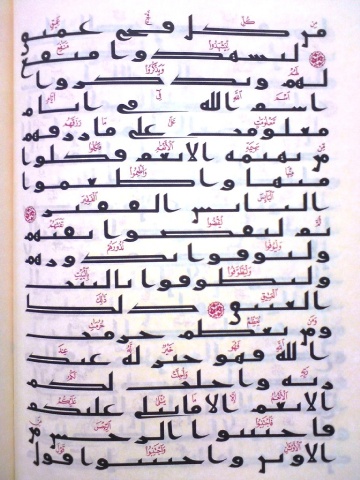 من كل فج عميق
ليشهدوا منفع
لهم ويذكروا
اسم الله في ايام
معلومت على ما رزقهم
من بهيمة الانعم فكلوا
منها واطعموا
البائس الفقير
ثم ليقضوا تفثهم
وليوفوا نذورهم
وليطوفوا بالبيت
العتيق ذلك
ومن يعظم حرمت
الله فهو خير له عند
ربه واحلت لكم
الانعم الا ما يتلى عليكم
فاجتنبوا الرجس من
الاوثن واجتنبوا قول